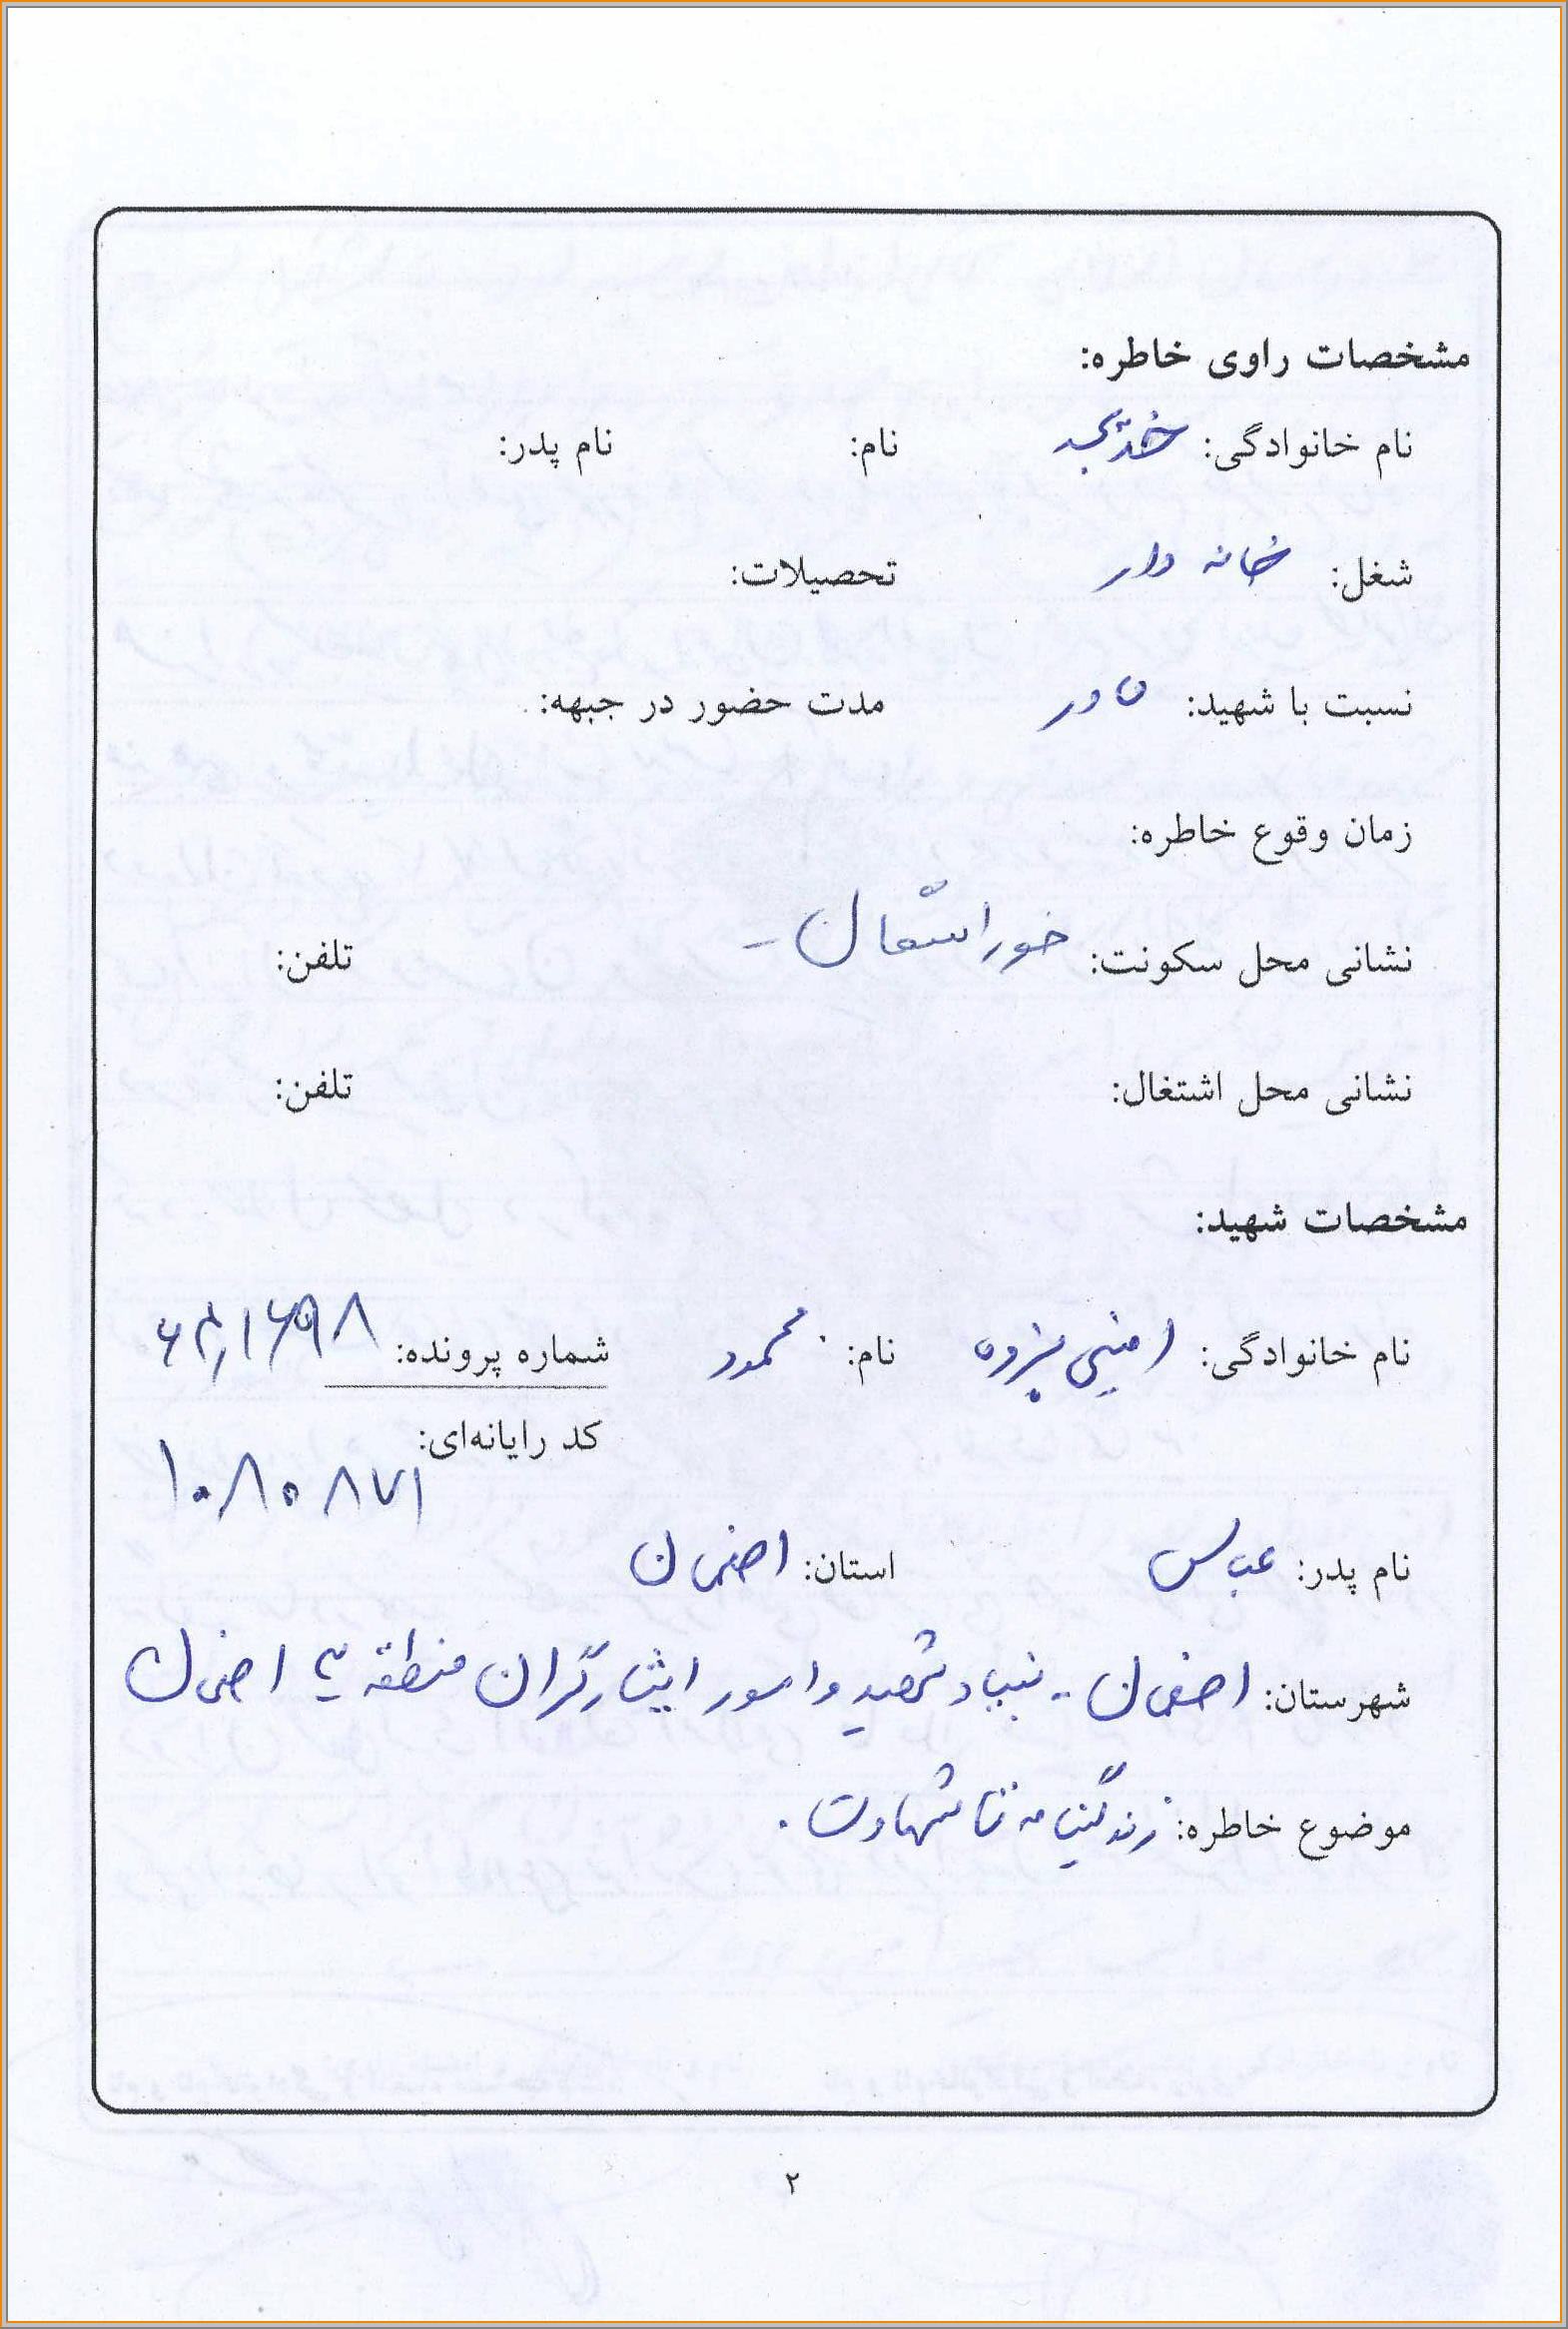 مشخصات راوی خاطره:
نام خانوادگی: خدیجه نام: نام پدر:
شغل: خانه دار تحصیلات:
نسبت با شهید: مادر مدت حضور در جبهه:
زمان وقوع خاطره:
نشانی محل سکونت: خوراسگان - تلفن:
نشانی محل اشتغال: تلفن:
مشخصات شهید:
نام خانوادگی: امینی پزوه نام: محمود شماره پرونده:
کد رایانه‌ای: ۱۰۸۰۸۷۱
نام پدر: عباس استان: اصفهان
شهرستان: اصفهان - بنیاد شهید و امور ایثارگران منطقه اصفهان
موضوع خاطره: زندگینامه تا شهادت .
۲